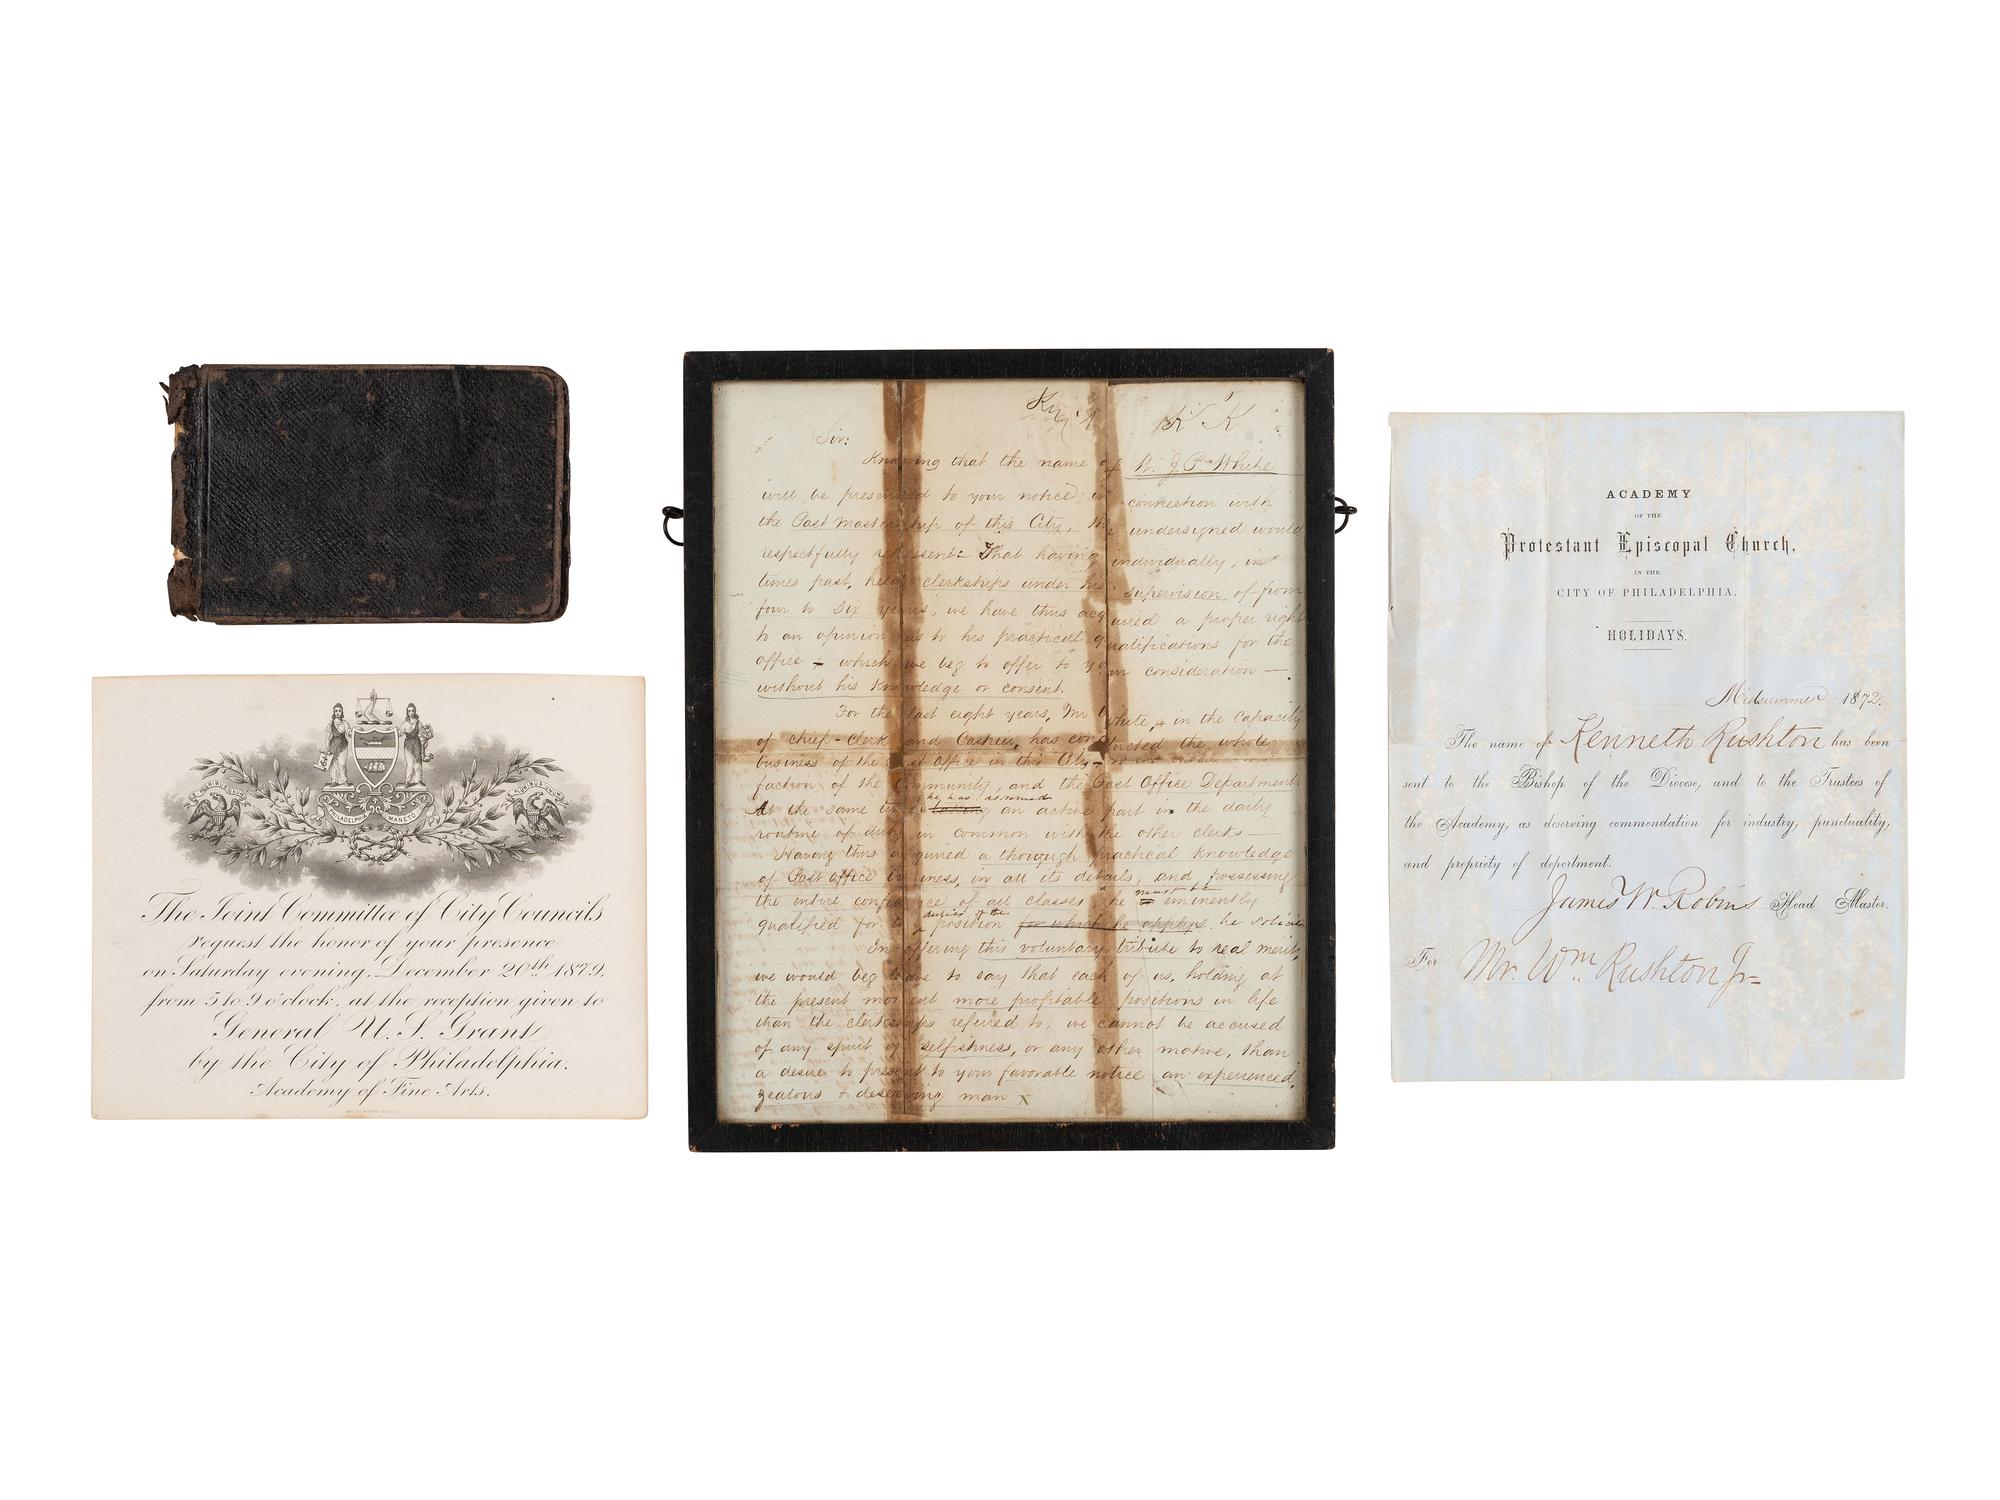 E PLURIBUS UNUM
E PLURIBUS UNUM
PHILADELPHIA MANETO
The Joint Committee of City Councils
request the honor of your presence
on Saturday evening, December 20th 1879.
from 5 to 9 o'clock, at the reception given to
General U. S. Grant
by the City of Philadelphia.
Academy of Fine Arts.
K K
Sir:
Knowing that the name of W. J. P. White
will be presented to your notice in connection with
the Post mastership of this City, the undersigned would
respectfully represent: That having individually, in
times past, held clerkships under his supervision, of from
four to six years, we have thus acquired a proper right
to an opinion as to his practical qualifications for the
office - which we beg to offer to your consideration —
without his knowledge or consent.
For the last eight years, Mr White, in the capacity
of chief-clerk and Cashier, has conducted the whole
business of the Post office in this City
faction of the Community, and the Post Office Department.
At the same time he has assumed an active part in the daily
routine of duty in common with the other clerks —
Having thus acquired a thorough practical knowledge
of Post office business, in all its details, and possessing
the entire confidence of all classes he must be eminently
qualified for the duties of the position for which he applies. he solicits
In offering this voluntary tribute to real merit,
we would beg leave to say that each of us, holding at
the present moment more profitable positions in life
than the clerkships refered to, we cannot be accused
of any spirit of selfishness, or any other motive, than
a desire to present to your favorable notice an experienced,
zealous & deserving man x
ACADEMY
OF THE
Protestant Episcopal Church,
IN THE
CITY OF PHILADELPHIA.
HOLIDAYS.
Midsummer 1872.
The name of Kenneth Rushton has been
sent to the Bishop of the Diocese, and to the Trustees of
the Academy, as deserving commendation for industry, punctuality,
and propriety of deportment.
James W. Robins Head Master.
For Mr. Wm Rushton Jr